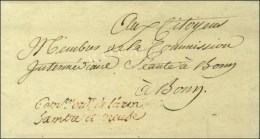 Aux Citoyens
Membres de la Commission
Intermédiaire Séante à Bonn
à Bonn
Sambre et Meuse